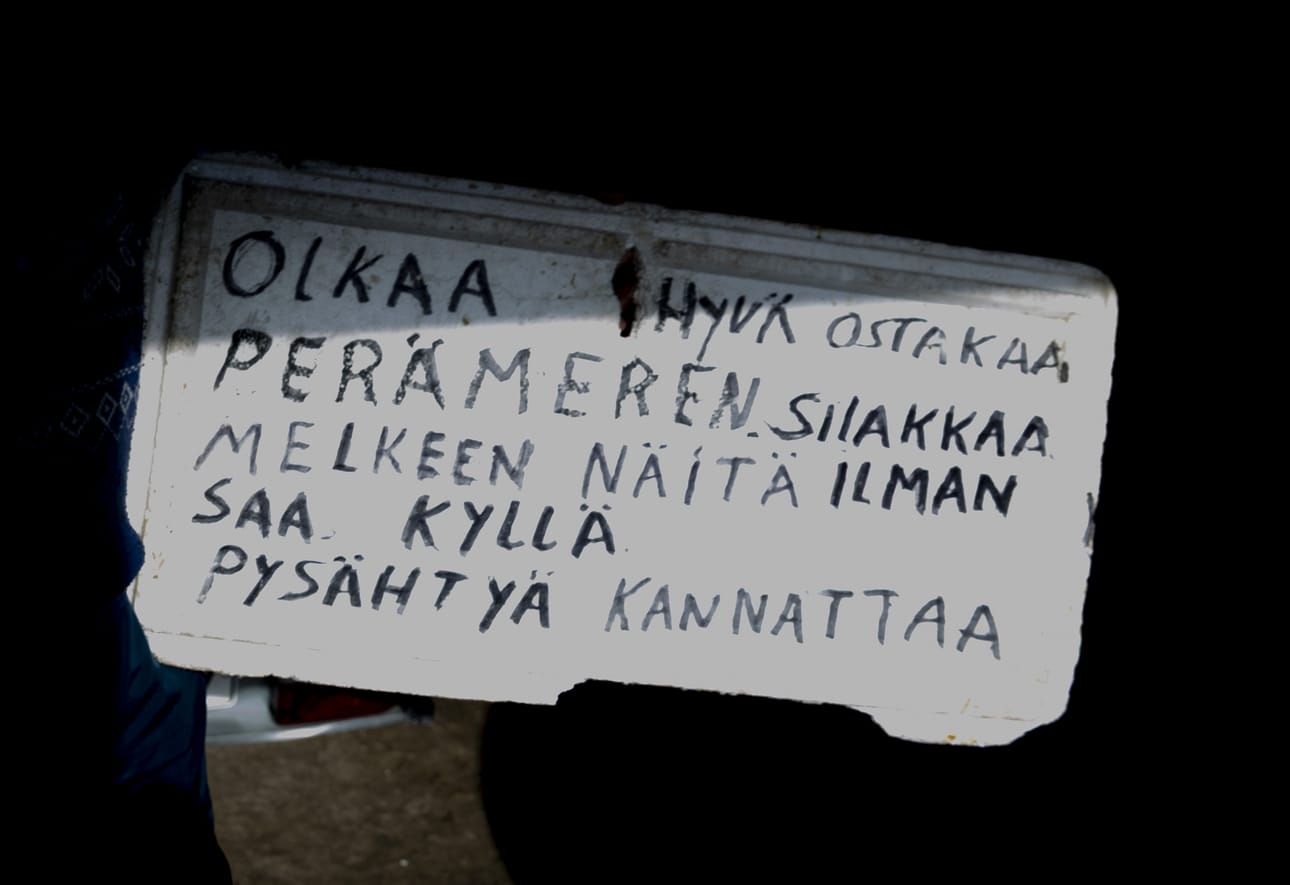 OLKAA HYVÄ OSTAKAA
PERÄMEREN SILAKKAA
MELKEEN NÄITÄ ILMAN
SAA. KYLLÄ
PYSÄHTYÄ KANNATTAA